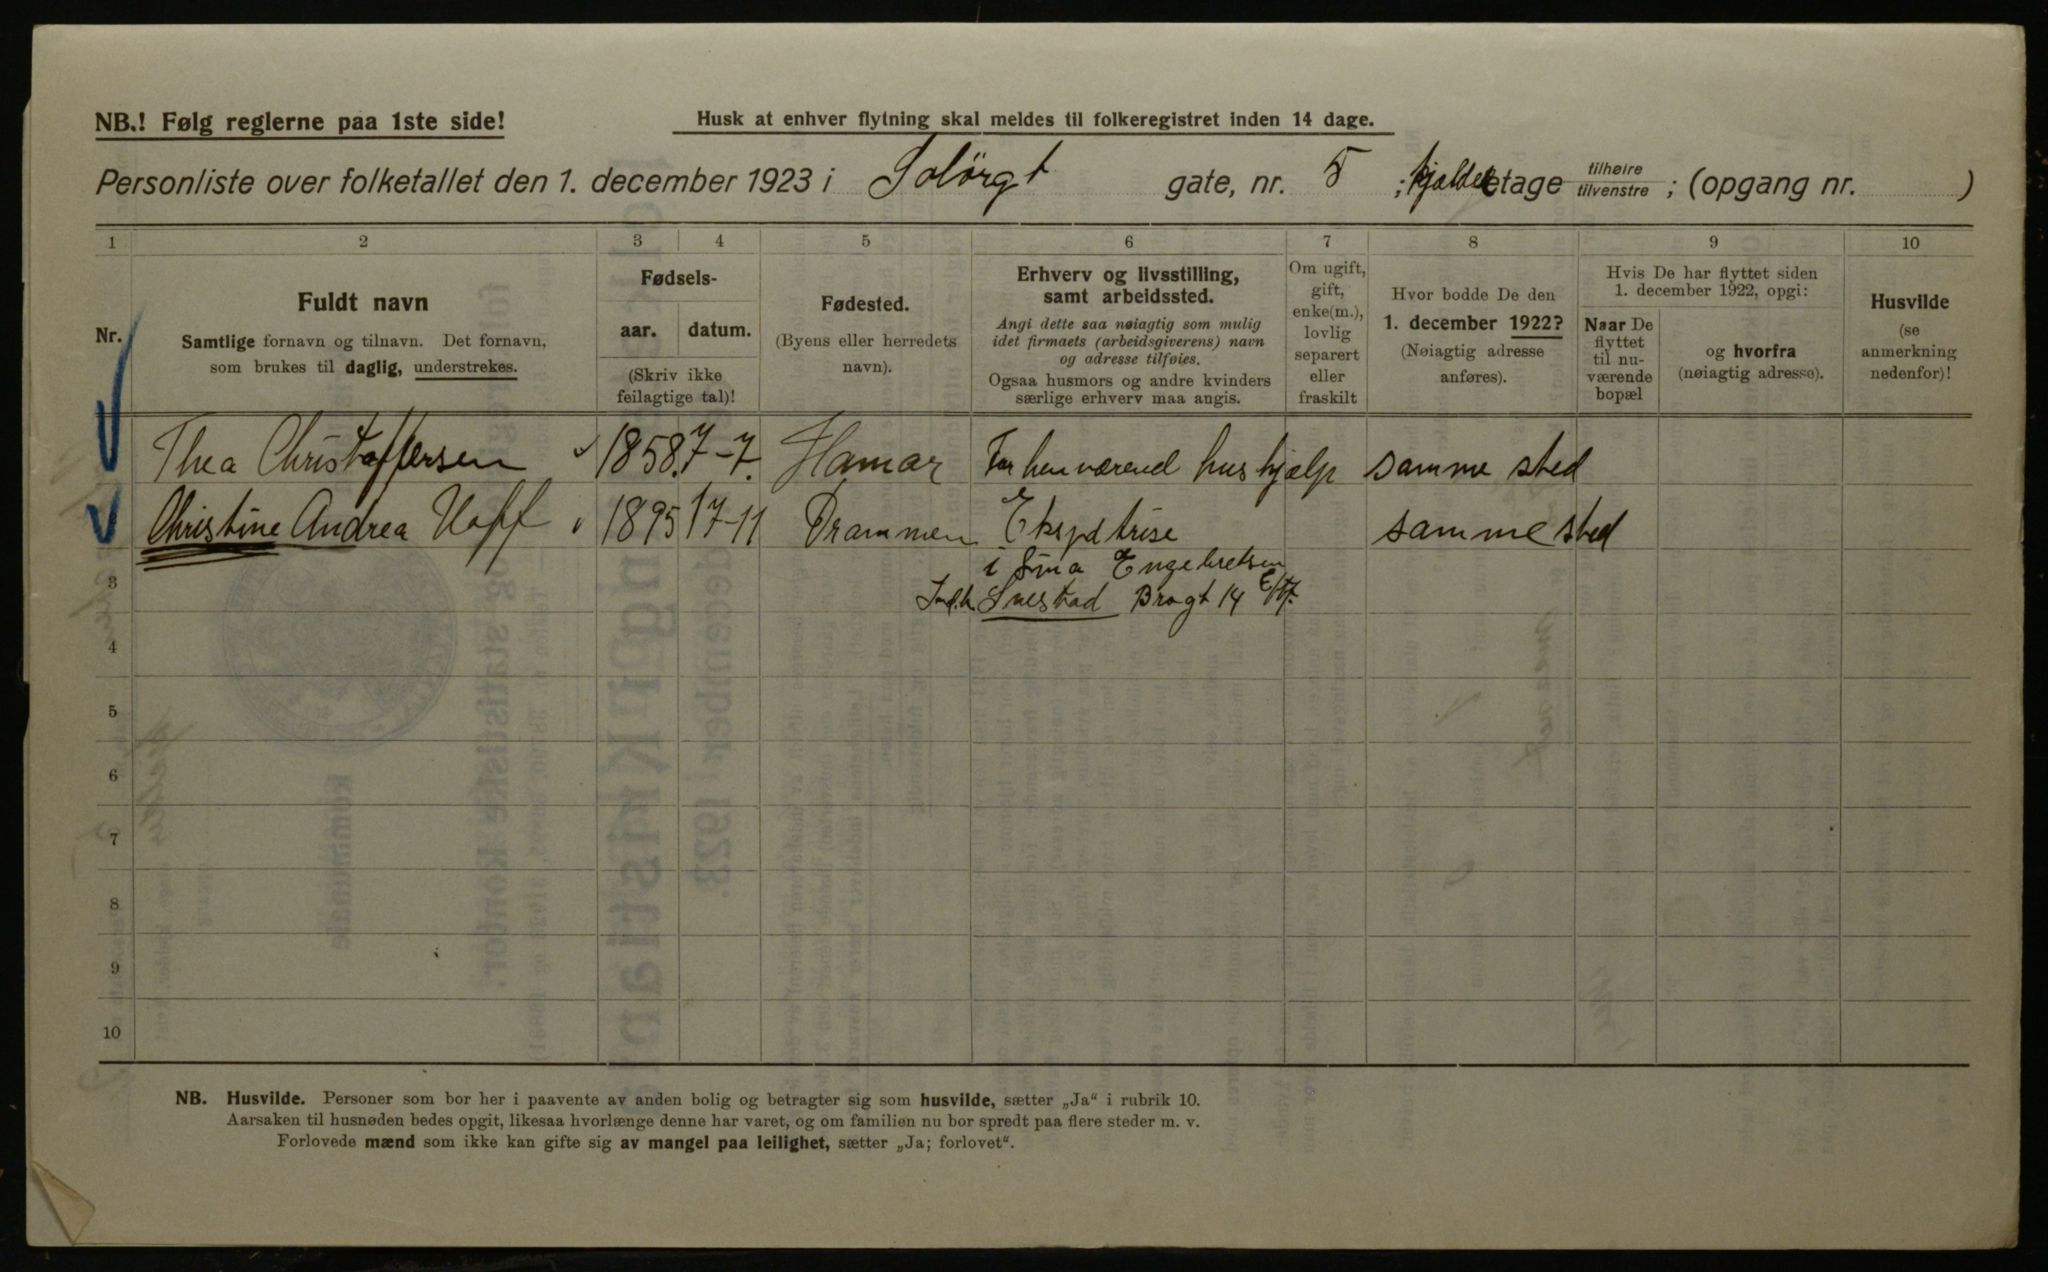 NB.! Følg reglerne paa 1ste side!
Husk at enhver flytning skal meldes til folkeregistret inden 14 dage.
Personliste over folketallet den 1. december 1923 i Solörgt gate, nr. 5 ; kjelder etage tilhøire tilvenstre ; (opgang nr. )
1 2 3 4 5 6 7 8 9 10
Nr.
Fuldt navn
Samtlige fornavn og tilnavn. Det fornavn,
som brukes til daglig, understrekes.
Fødsels-
aar. datum.
(Skriv ikke
feilagtige tal)!
Fødested.
(Byens eller herredets
navn).
Erhverv og livsstilling,
samt arbeidssted.
Angi dette saa nøiagtig som mulig
idet firmaets (arbeidsgiverens) navn
og adresse tilføies.
Ogsaa husmors og andre kvinders
særlige erhverv maa angis.
Om ugift,
gift,
enke(m.),
lovlig
separert
eller
fraskilt
Hvor bodde De den
1. december 1922?
(Nøiagtig adresse
anføres).
Hvis De har flyttet siden
1. december 1922, opgi:
Naar De
flyttet
til nu-
værende
bopæl
og hvorfra
(nøiagtig adresse).
Husvilde
(se
anmerkning
nedenfor)!
Thea Christoffersen 1858 7-7. Hamar Forhenværend hushjælp samme sted
Christine Andrea Hoff 1895 17-11 Drammen Ekspdtrise samme sted
3 i Sina Engebretsen
Snestad Brogt 14 Eftf.
4
5
6
7
8
9
10
NB. Husvilde. Personer som bor her i paavente av anden bolig og betragter sig som husvilde, sætter „Ja“ i rubrik 10.
Aarsaken til husnøden bedes opgit, likesaa hvorlænge denne har varet, og om familien nu bor spredt paa flere steder m. v.
Forlovede mænd som ikke kan gifte sig av mangel paa leilighet, sætter „Ja; forlovet“.